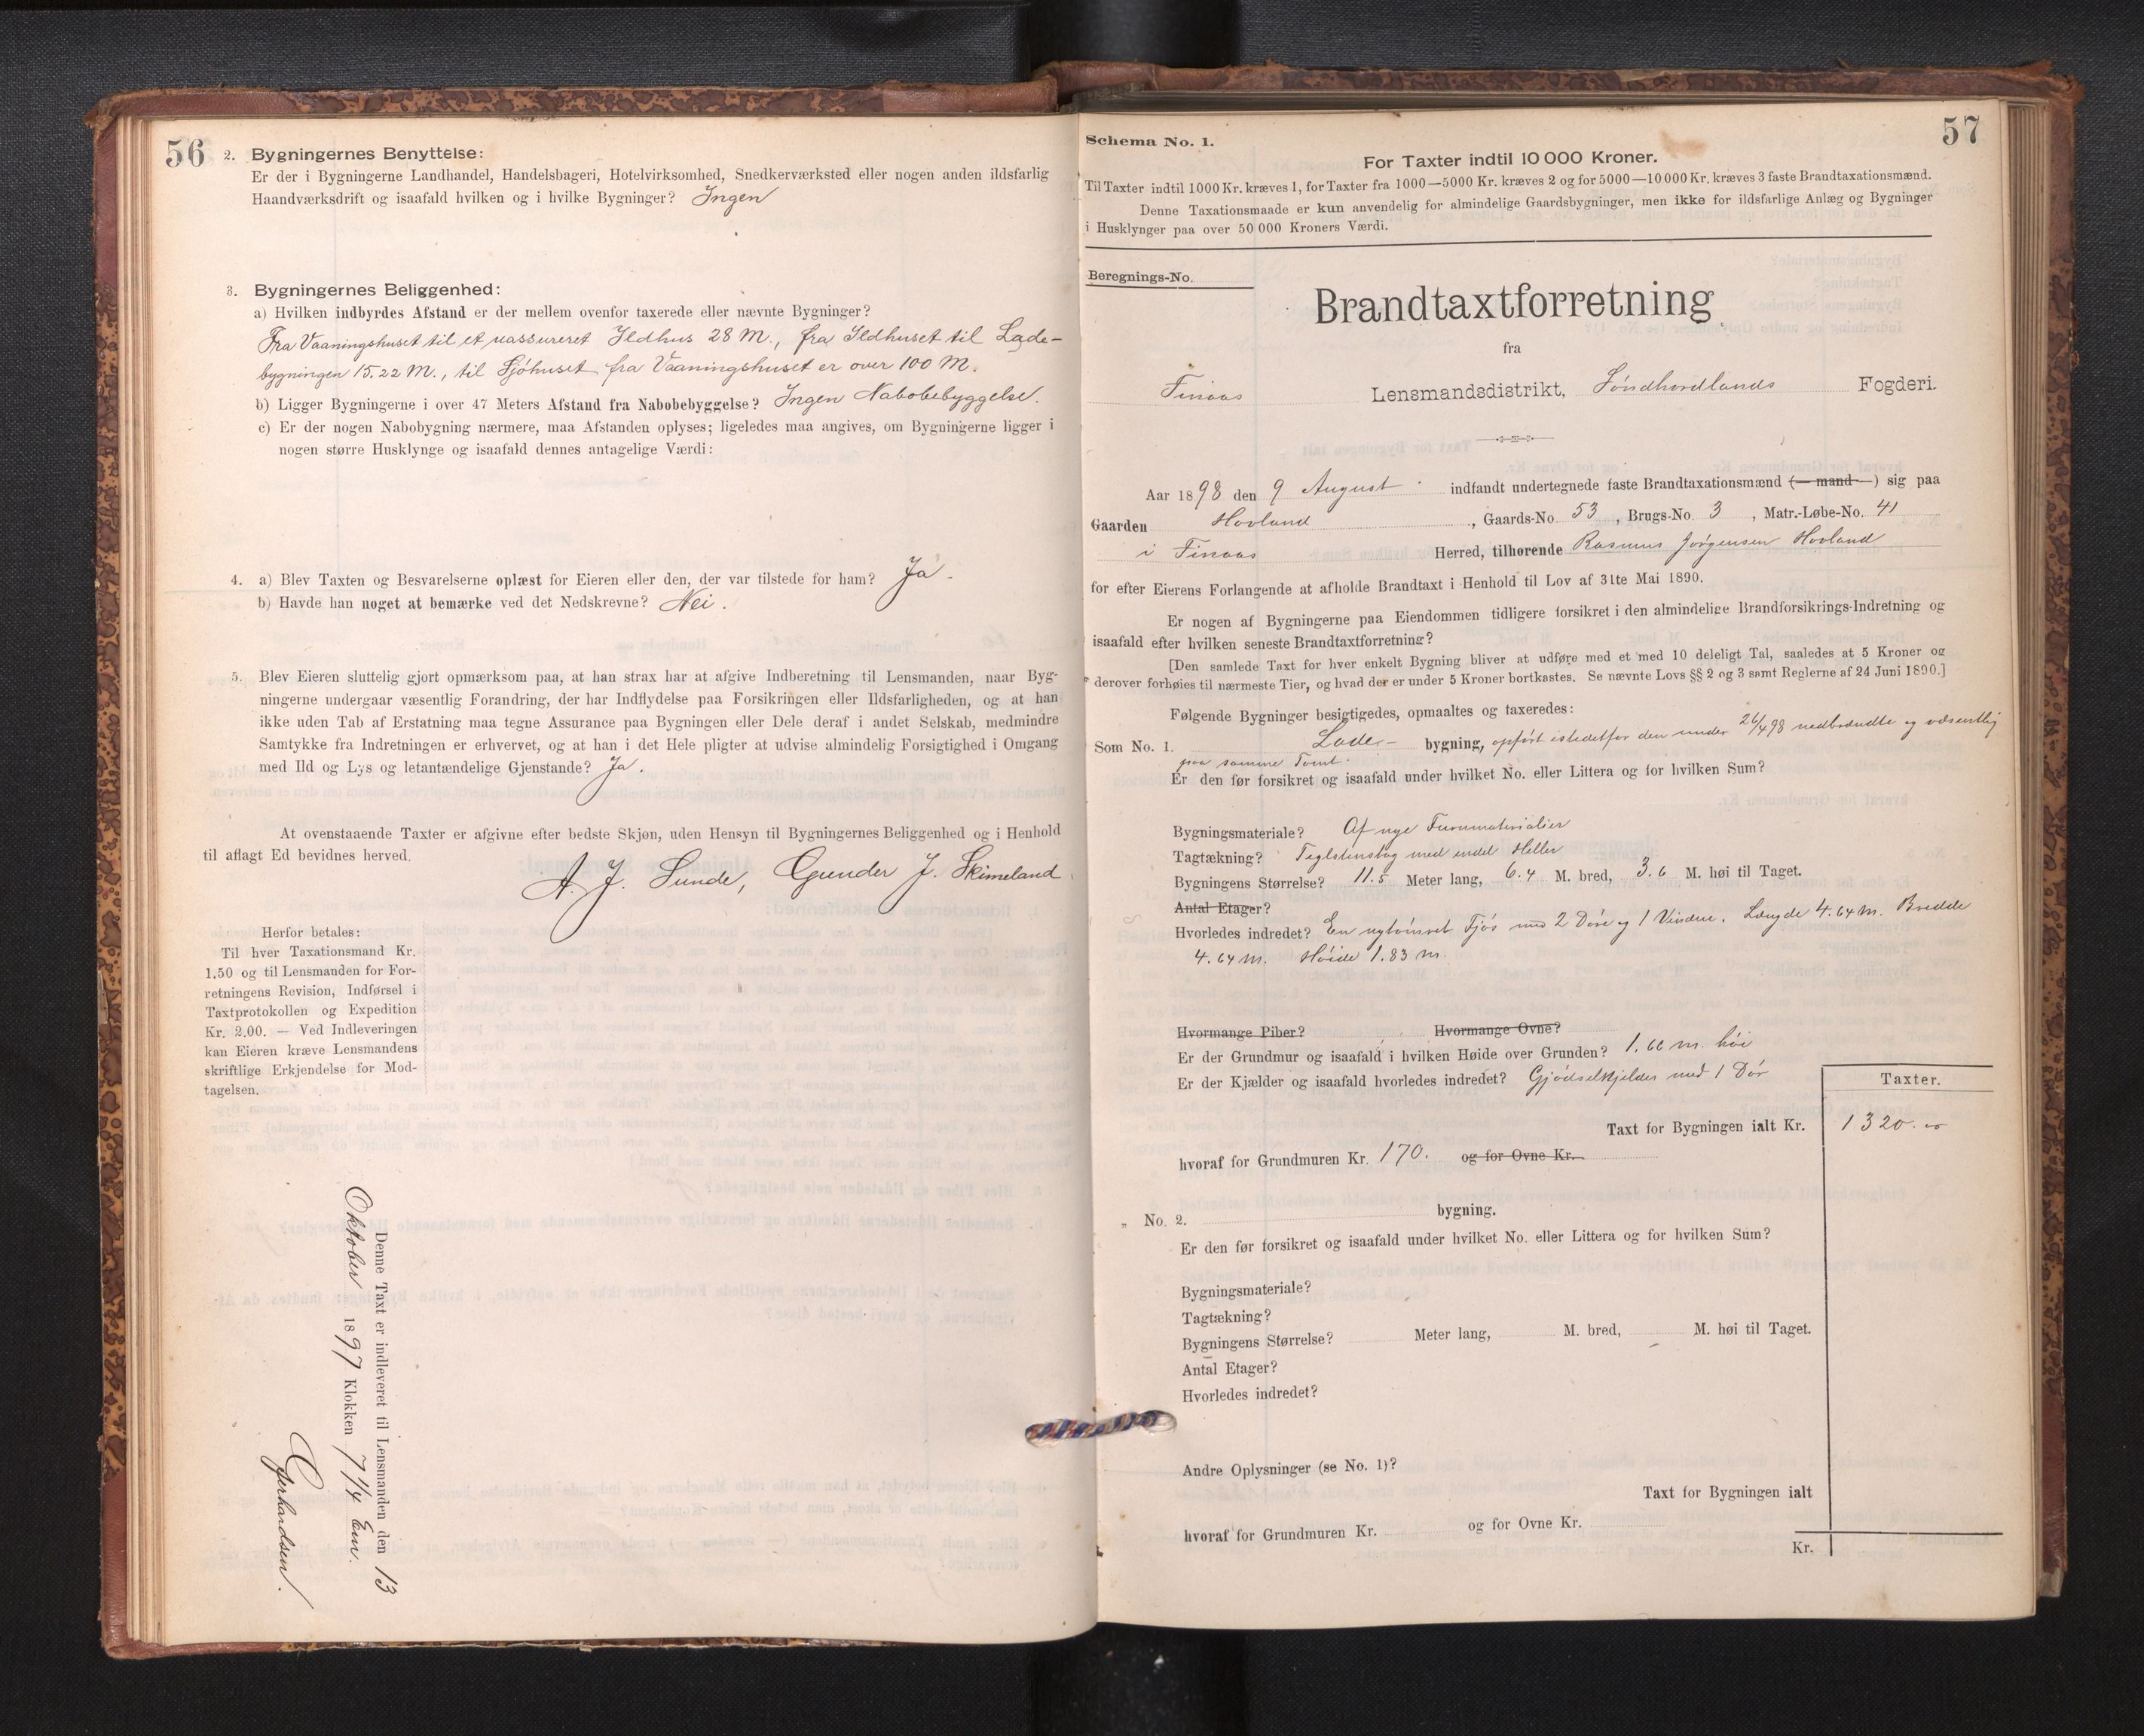 56
2. Bygningernes Benyttelse:
Er der i Bygningerne Landhandel, Handelsbageri, Hotelvirksomhed, Snedkerværksted eller nogen anden ildsfarlig
Haandværksdrift og isaafald hvilken og i hvilke Bygninger? Ingen
3. Bygningernes Beliggenhed:
a) Hvilken indbyrdes Afstand er der mellem ovenfor taxerede eller nævnte Bygninger?
Fra Vaaningshuset til et uassureret Ildhus 28 M., fra Ildhuset til Lade-
bygningen 15.22 M., til Sjöhuset fra Vaaningshuset er over 100 M.
b) Ligger Bygningerne i over 47 Meters Afstand fra Nabobebyggelse? Ingen Nabobebyggelse.
c) Er der nogen Nabobygning nærmere, maa Afstanden oplyses; ligeledes maa angives, om Bygningerne ligger i
nogen større Husklynge og isaafald dennes antagelige Værdi:
4. a) Blev Taxten og Besvarelserne oplæst for Eieren eller den, der var tilstede for ham? Ja.
b) Havde han noget at bemærke ved det Nedskrevne? Nei.
5. Blev Eieren sluttelig gjort opmærksom paa, at han strax har at afgive Indberetning til Lensmanden, naar Byg-
ningerne undergaar væsentlig Forandring, der har Indflydelse paa Forsikringen eller Ildsfarligheden, og at han
ikke uden Tab af Erstatning maa tegne Assurance paa Bygningen eller Dele deraf i andet Selskab, medmindre
Samtykke fra Indretningen er erhvervet, og at han i det Hele pligter at udvise almindelig Forsigtighed i Omgang
med Ild og Lys og letantændelige Gjenstande? Ja.
At ovenstaaende Taxter er afgivne efter bedste Skjøn, uden Hensyn til Bygningernes Beliggenhed og i Henhold
til aflagt Ed bevidnes herved.
A. J. Sunde, Gunder J. Skimeland.
Herfor betales:
Til hver Taxationsmand Kr.
1.50 og til Lensmanden for For-
retningens Revision, Indførsel i
Taxtprotokollen og Expedition
Kr. 2.00. — Ved Indleveringen
kan Eieren kræve Lensmandens
skriftlige Erkjendelse for Mod-
tagelsen.
Denne Taxt er indleveret til Lensmanden den 13
Oktober 1897 Klokken 7 1/4 Em.
Gerhardsen.
57
Schema No. 1.
For Taxter indtil 10 000 Kroner.
Til Taxter indtil 1000 Kr. kræves 1, for Taxter fra 1000—5000 Kr. kræves 2 og for 5000—10 000 Kr. kræves 3 faste Brandtaxationsmænd.
Denne Taxationsmaade er kun anvendelig for almindelige Gaardsbygninger, men ikke for ildsfarlige Anlæg og Bygninger
i Husklynger paa over 50 000 Kroners Værdi.
Beregnings-No.
Brandtaxtforretning
fra
Finaas Lensmandsdistrikt, Söndhordlands Fogderi.
Aar 1898 den 9 August indfandt undertegnede faste Brandtaxationsmænd (— mand —) sig paa
Gaarden Hovland, Gaards-No. 53, Brugs-No. 3, Matr.-Løbe-No. 41
i Finaas Herred, tilhørende Rasmus Jörgensen Hovland
for efter Eierens Forlangende at afholde Brandtaxt i Henhold til Lov af 31te Mai 1890.
Er nogen af Bygningerne paa Eiendommen tidligere forsikret i den almindelige Brandforsikrings-Indretning og
isaafald efter hvilken seneste Brandtaxtforretning?
[Den samlede Taxt for hver enkelt Bygning bliver at udføre med et med 10 deleligt Tal, saaledes at 5 Kroner og
derover forhøies til nærmeste Tier, og hvad der er under 5 Kroner bortkastes. Se nævnte Lovs §§ 2 og 3 samt Reglerne af 24 Juni 1890.]
Følgende Bygninger besigtigedes, opmaaltes og taxeredes:
Som No. 1. Lade- bygning, opfört istedetfor den under 26/4 98 nedbrændte og væsentlig
paa samme Tomt.
Er den før forsikret og isaafald under hvilket No. eller Littera og for hvilken Sum?
Bygningsmateriale? Af nye Furumaterialier
Tagtækning? Teglstenstag med endel Heller
Bygningens Størrelse? 11.5 Meter lang, 6.4 M. bred, 3.6 M. høi til Taget.
Antal Etager?
Hvorledes indredet? En nytömret Fjös med 2 Döre og 1 Vindue. Længde 4.64 m. Bredde
4.64 m. Höide 1.83 m.
Hvormange Piber? Hvormange Ovne?
Er der Grundmur og isaafald i hvilken Høide over Grunden? 1.66 m. höi
Er der Kjælder og isaafald hvorledes indredet? Gjödselkjelder med 1 Dör
Taxter.
Taxt for Bygningen ialt Kr. 1320.00
hvoraf for Grundmuren Kr. 170. og for Ovne Kr.
„ No. 2. bygning.
Er den før forsikret og isaafald under hvilket No. eller Littera og for hvilken Sum?
Bygningsmateriale?
Tagtækning?
Bygningens Størrelse? Meter lang, M. bred, M. høi til Taget.
Antal Etager?
Hvorledes indredet?
Andre Oplysninger (se No. 1)?
Taxt for Bygningen ialt
hvoraf for Grundmuren Kr. og for Ovne Kr.
Kr.